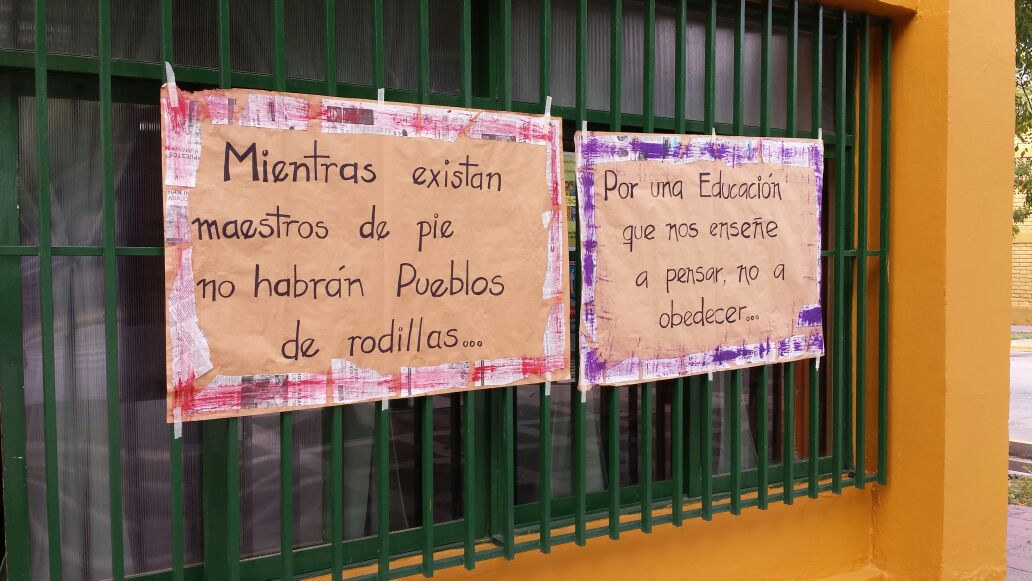 Mientras existan
maestros de pie
no habrán Pueblos
de rodillas...
Por una Educación
que nos enseñe
a pensar, no a
obedecer...